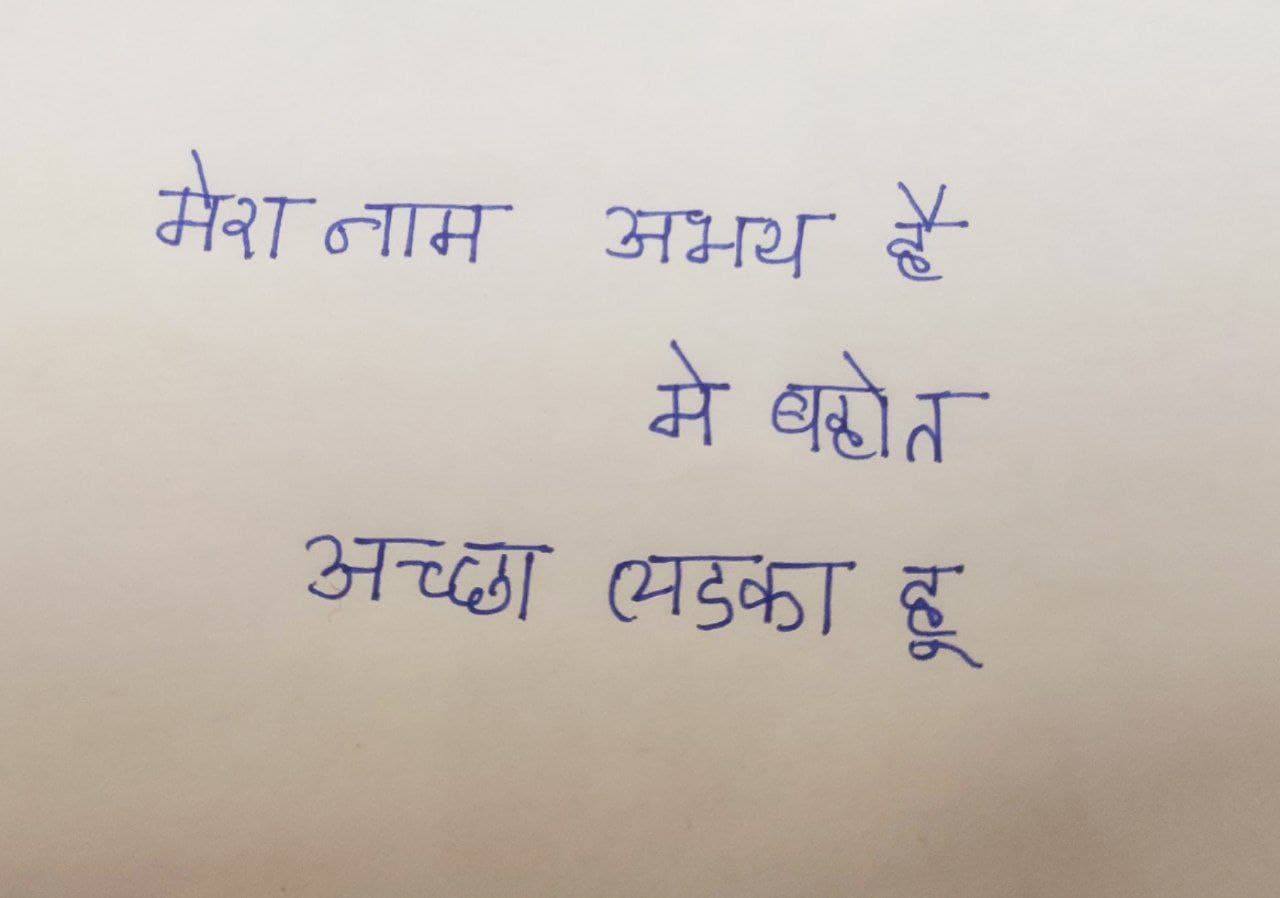 मेरा नाम अभय है
मे बहोत
अच्छा लडका हू